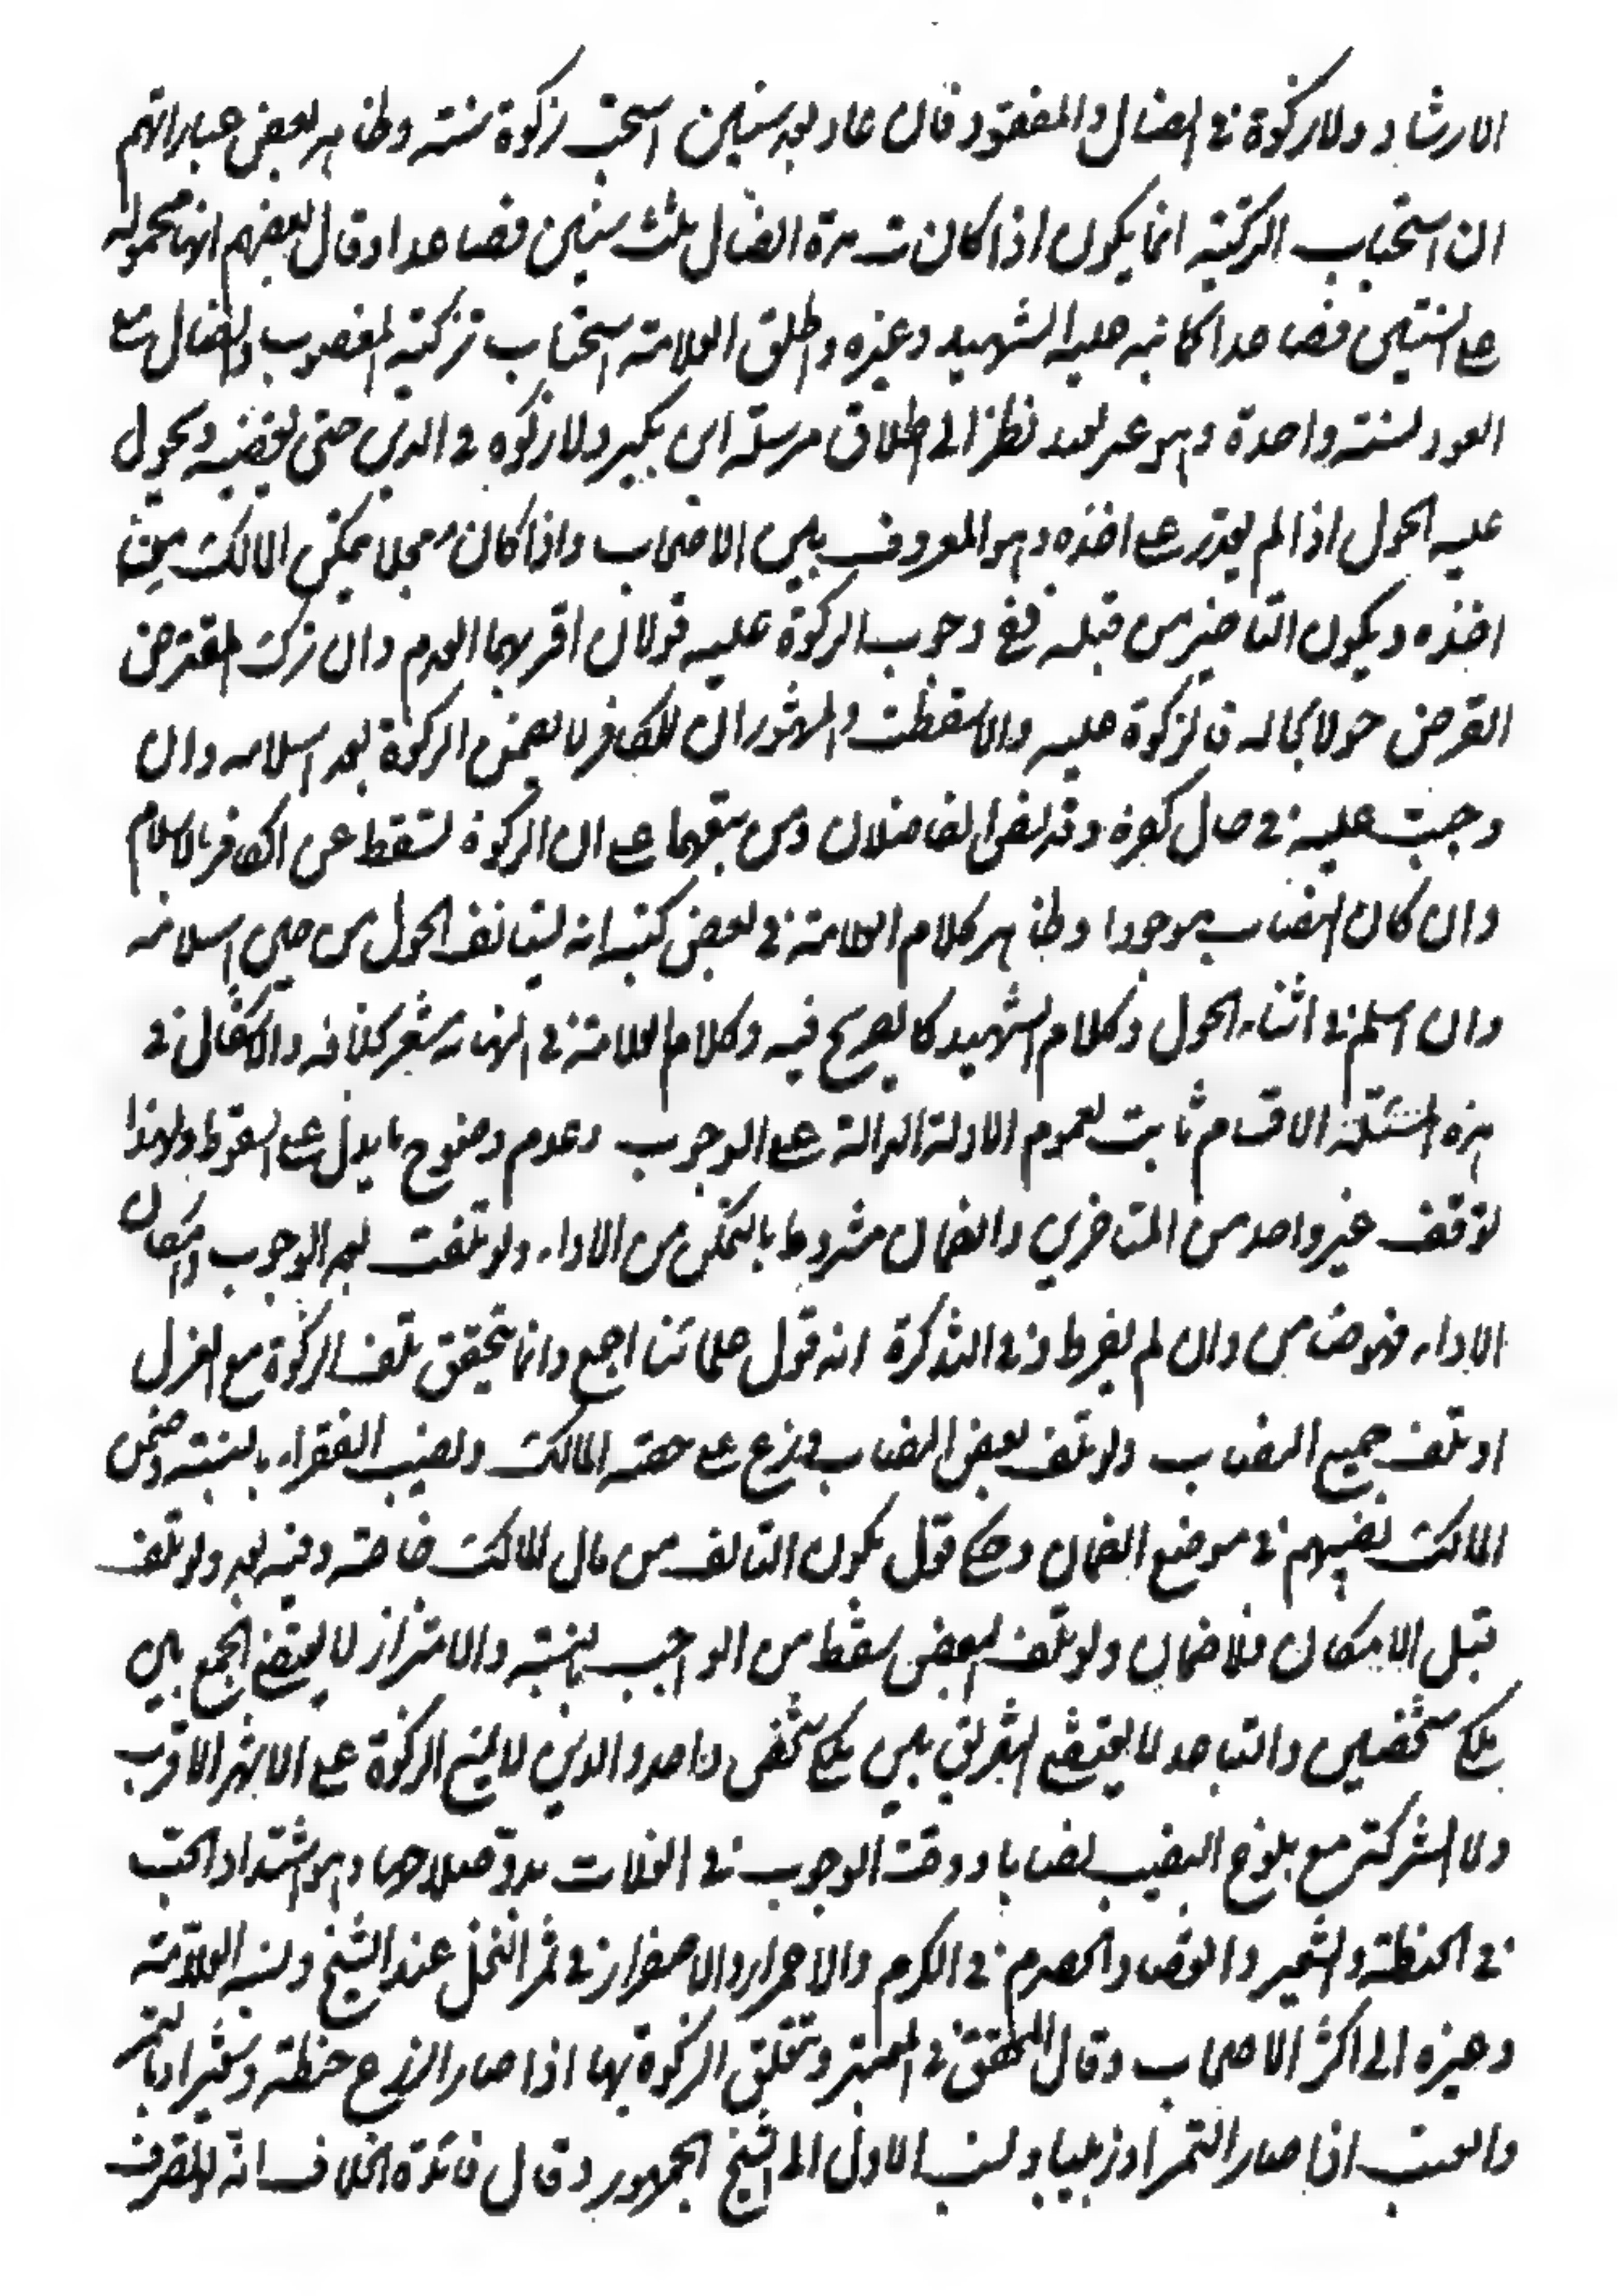 الارشاد ولا زكوة في الضال والمفقود فان عاد بعد سنين استحب زكوة سنته وظاهر بعض عباراتهم
ان استحباب التزكية انما يكون اذا كانت مدة الضال ثلث سنين فصاعدا وقال بعضهم انها محمولة
على السنتين فصاعدا كما نبه عليه الشهيد وغيره واطلق العلامة استحباب تزكية المغصوب والضال مع
العود لسنة واحدة وهو غير بعيد نظرا الى اطلاق مرسلة ابن بكير ولا زكوة في الدين حتى يقبضه ويحول
عليه الحول اذا لم يقدر على اخذه وهو المعروف بين الاصحاب واذا كان معجلا يمكن المالك من
اخذه ويكون التاخير من قبله ففي وجوب الزكوة عليه قولان اقربهما العدم وان ترك المقترض
القرض حولا بحاله فالزكوة عليه والا سقطت والمشهور ان الكافر لا يضمن الزكوة بعد اسلامه وان
وجبت عليه في حال كفره وقد نص الفاضلان ومن تبعهما على ان الزكوة تسقط عن الكافر بالاسلام
وان كان النصاب موجودا وظاهر كلام العلامة في بعض كتبه انه يستانف الحول من حين اسلامه
وان اسلم في اثناء الحول وكلام الشهيد كالصريح فيه وكلام العلامة في النهاية يشعر بخلافه والاشكال في
هذه المسئلة الاقسام ثابت لعموم الادلة الدالة على الوجوب وعدم وضوح ما يدل على السقوط ولهذا
توقف غير واحد من المتاخرين والضمان مشروط بالتمكن من الاداء ولو تلفت بعد الوجوب وامكان
الاداء فهو ضامن وان لم يفرط وفي التذكرة انه قول علمائنا اجمع وانما يتحقق تلف الزكوة مع العزل
او تلف جميع النصاب ولو تلف بعض النصاب وزع على حصة المالك ونصيب الفقراء بالنسبة وضمن
المالك نصيبهم في موضع الضمان وحكي قول بكون التالف من مال المالك خاصة وفيه بعد ولو تلف
قبل الامكان فلا ضمان ولو تلف البعض سقط من الواجب بالنسبة والامتزاز لا يقتضي الجمع بين
ملك شخصين والتباعد لا يقتضي التفريق بين ملك شخص واحد والدين لا يمنع الزكوة على الاشهر الاقرب
ولا الشركة مع بلوغ النصيب نصابا ووقت الوجوب في الغلات بدو صلاحها وهو اشتداد الحب
في الحنطة والشعير وانعقاد الحصرم في الكرم والاحمرار والاصفرار في ثمر النخل عند الشيخ ونسبه العلامة
وغيره الى اكثر الاصحاب وقال المحقق في المعتبر وتتعلق الزكوة بها اذا صار الزرع حنطة وشعيرا وبالتمر
والعنب اذا صار التمرا وزبيبا ونسب الاول الى الشيخ الجمهور وقال فائدة الخلاف انه لو تصرف